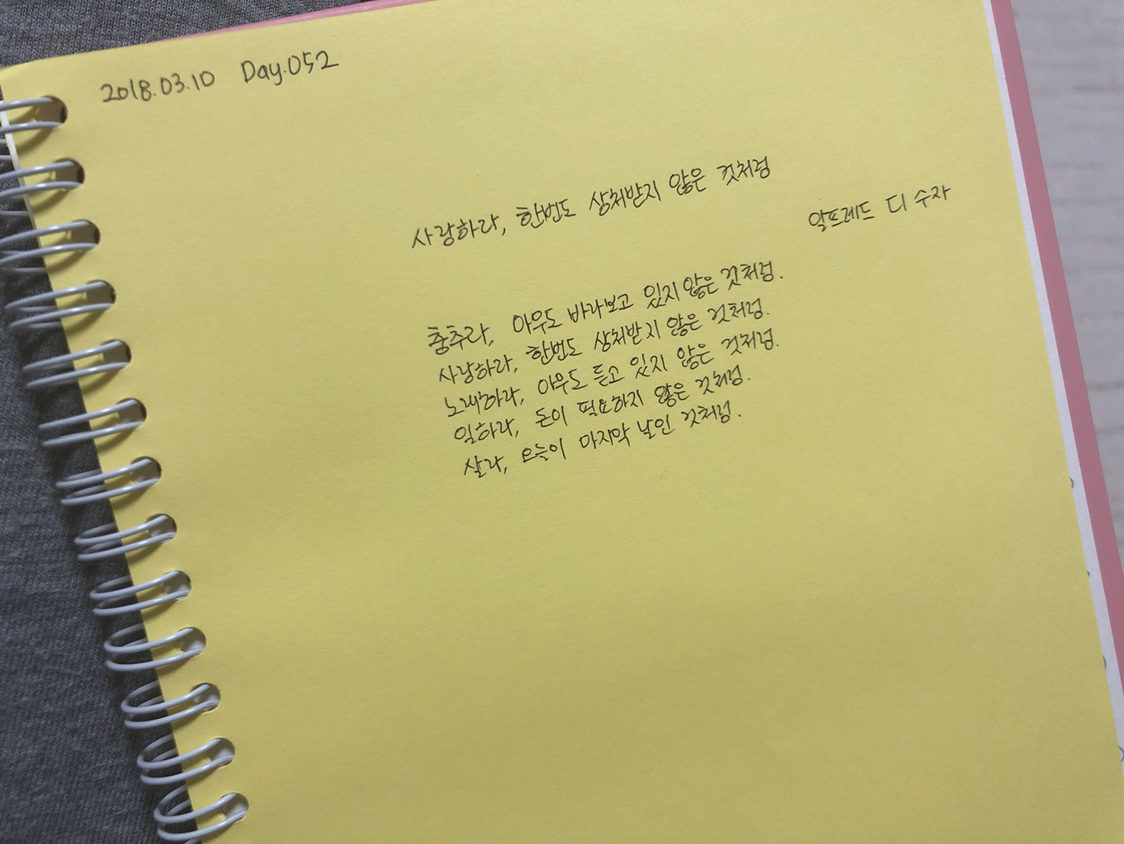 2018.03.10 Day.052
사랑하라, 한번도 상처받지 않은 것처럼
알프레드 디 수자
춤추라, 아무도 바라보고 있지 않은 것처럼.
사랑하라, 한번도 상처받지 않은 것처럼.
노래하라, 아무도 듣고 있지 않은 것처럼.
일하라, 돈이 필요하지 않은 것처럼.
살라, 오늘이 마지막 날인 것처럼.